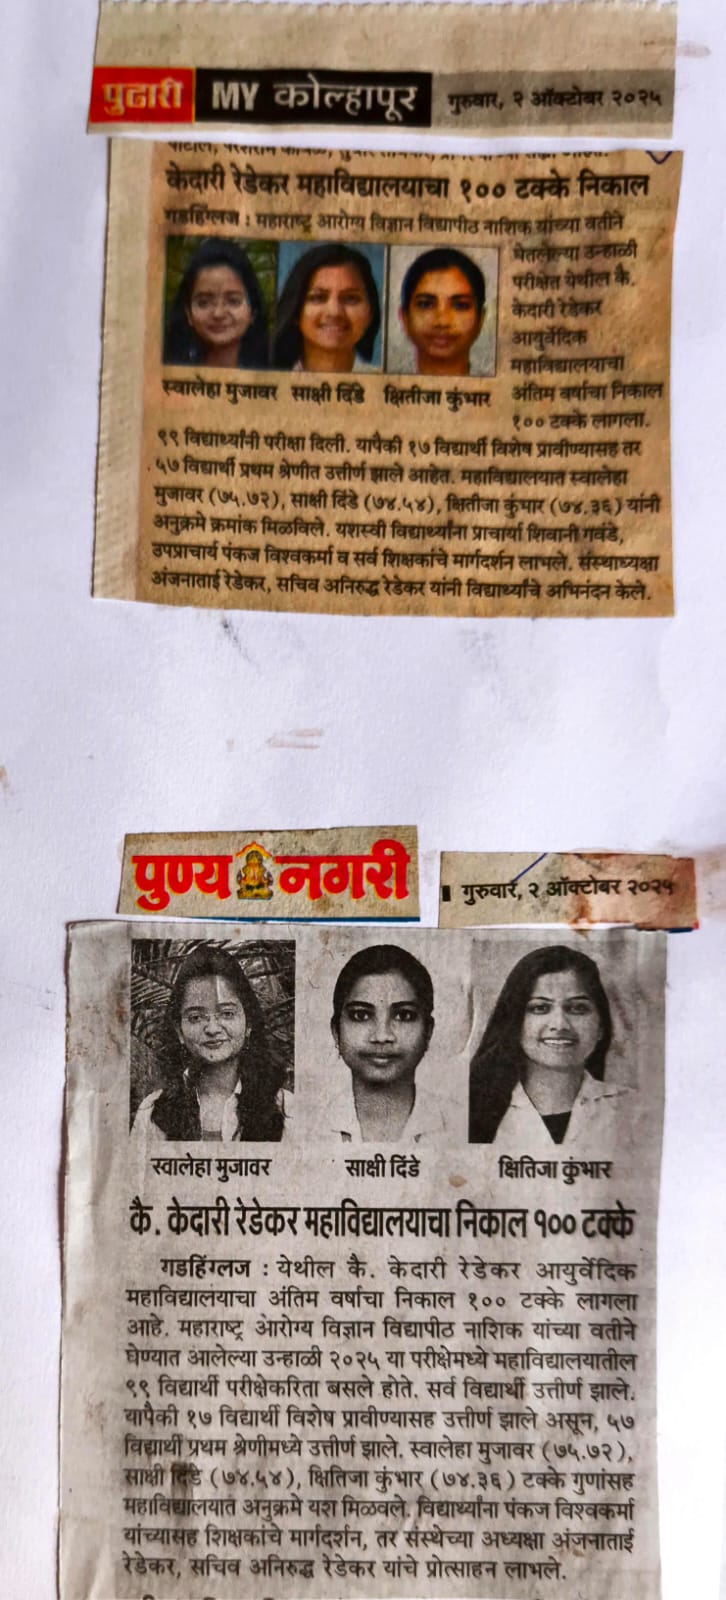 पुढारी MY कोल्हापूर गुरुवार, २ ऑक्टोबर २०२५
केदारी रेडेकर महाविद्यालयाचा १०० टक्के निकाल
गडहिंग्लज : महाराष्ट्र आरोग्य विज्ञान विद्यापीठ नाशिक यांच्या वतीने
घेतलेल्या उन्हाळी
परीक्षेत येथील कै.
केदारी रेडेकर
आयुर्वेदिक
महाविद्यालयाचा
अंतिम वर्षाचा निकाल
१०० टक्के लागला.
स्वालेहा मुजावर साक्षी दिंडे क्षितीजा कुंभार
९९ विद्यार्थ्यांनी परीक्षा दिली. यापैकी १७ विद्यार्थी विशेष प्रावीण्यासह तर
५७ विद्यार्थी प्रथम श्रेणीत उत्तीर्ण झाले आहेत. महाविद्यालयात स्वालेहा
मुजावर (७५.७२), साक्षी दिंडे (७४.५४), क्षितीजा कुंभार (७४.३६) यांनी
अनुक्रमे क्रमांक मिळविले. यशस्वी विद्यार्थ्यांना प्राचार्या शिवानी गवंडे,
उपप्राचार्य पंकज विश्वकर्मा व सर्व शिक्षकांचे मार्गदर्शन लाभले. संस्थाध्यक्षा
अंजनाताई रेडेकर, सचिव अनिरुद्ध रेडेकर यांनी विद्यार्थ्यांचे अभिनंदन केले.
पुण्य नगरी
गुरुवार, २ ऑक्टोबर २०२५
स्वालेहा मुजावर साक्षी दिंडे क्षितिजा कुंभार
कै. केदारी रेडेकर महाविद्यालयाचा निकाल १०० टक्के
गडहिंग्लज : येथील कै. केदारी रेडेकर आयुर्वेदिक
महाविद्यालयाचा अंतिम वर्षाचा निकाल १०० टक्के लागला
आहे. महाराष्ट्र आरोग्य विज्ञान विद्यापीठ नाशिक यांच्या वतीने
घेण्यात आलेल्या उन्हाळी २०२५ या परीक्षेमध्ये महाविद्यालयातील
९९ विद्यार्थी परीक्षेकरिता बसले होते. सर्व विद्यार्थी उत्तीर्ण झाले.
यापैकी १७ विद्यार्थी विशेष प्रावीण्यासह उत्तीर्ण झाले असून, ५७
विद्यार्थी प्रथम श्रेणीमध्ये उत्तीर्ण झाले. स्वालेहा मुजावर (७५.७२),
साक्षी दिंडे (७४.५४), क्षितिजा कुंभार (७४.३६) टक्के गुणांसह
महाविद्यालयात अनुक्रमे यश मिळवले. विद्यार्थ्यांना पंकज विश्वकर्मा
यांच्यासह शिक्षकांचे मार्गदर्शन, तर संस्थेच्या अध्यक्षा अंजनाताई
रेडेकर, सचिव अनिरुद्ध रेडेकर यांचे प्रोत्साहन लाभले.